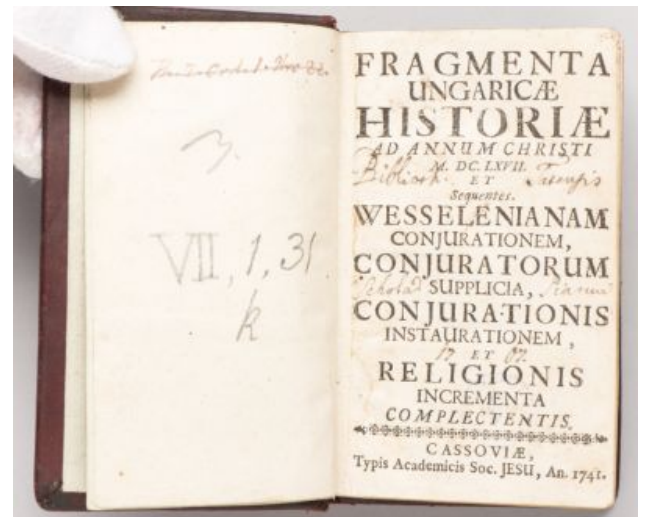 3.
VII, 1, 31
k
FRAGMENTA
UNGARICÆ
HISTORIÆ
AD ANNUM CHRISTI
M. DC. LXVII.
Biblioth.
ET
Sequentes.
WESSELENIANAM
CONJURATIONEM,
CONJURATORUM
SUPPLICIA,
CONJURATIONIS
INSTAURATIONEM,
ET
RELIGIONIS
INCREMENTA
COMPLECTENTIS.
CASSOVIÆ,
Typis Academicis Soc. JESU, An. 1741.